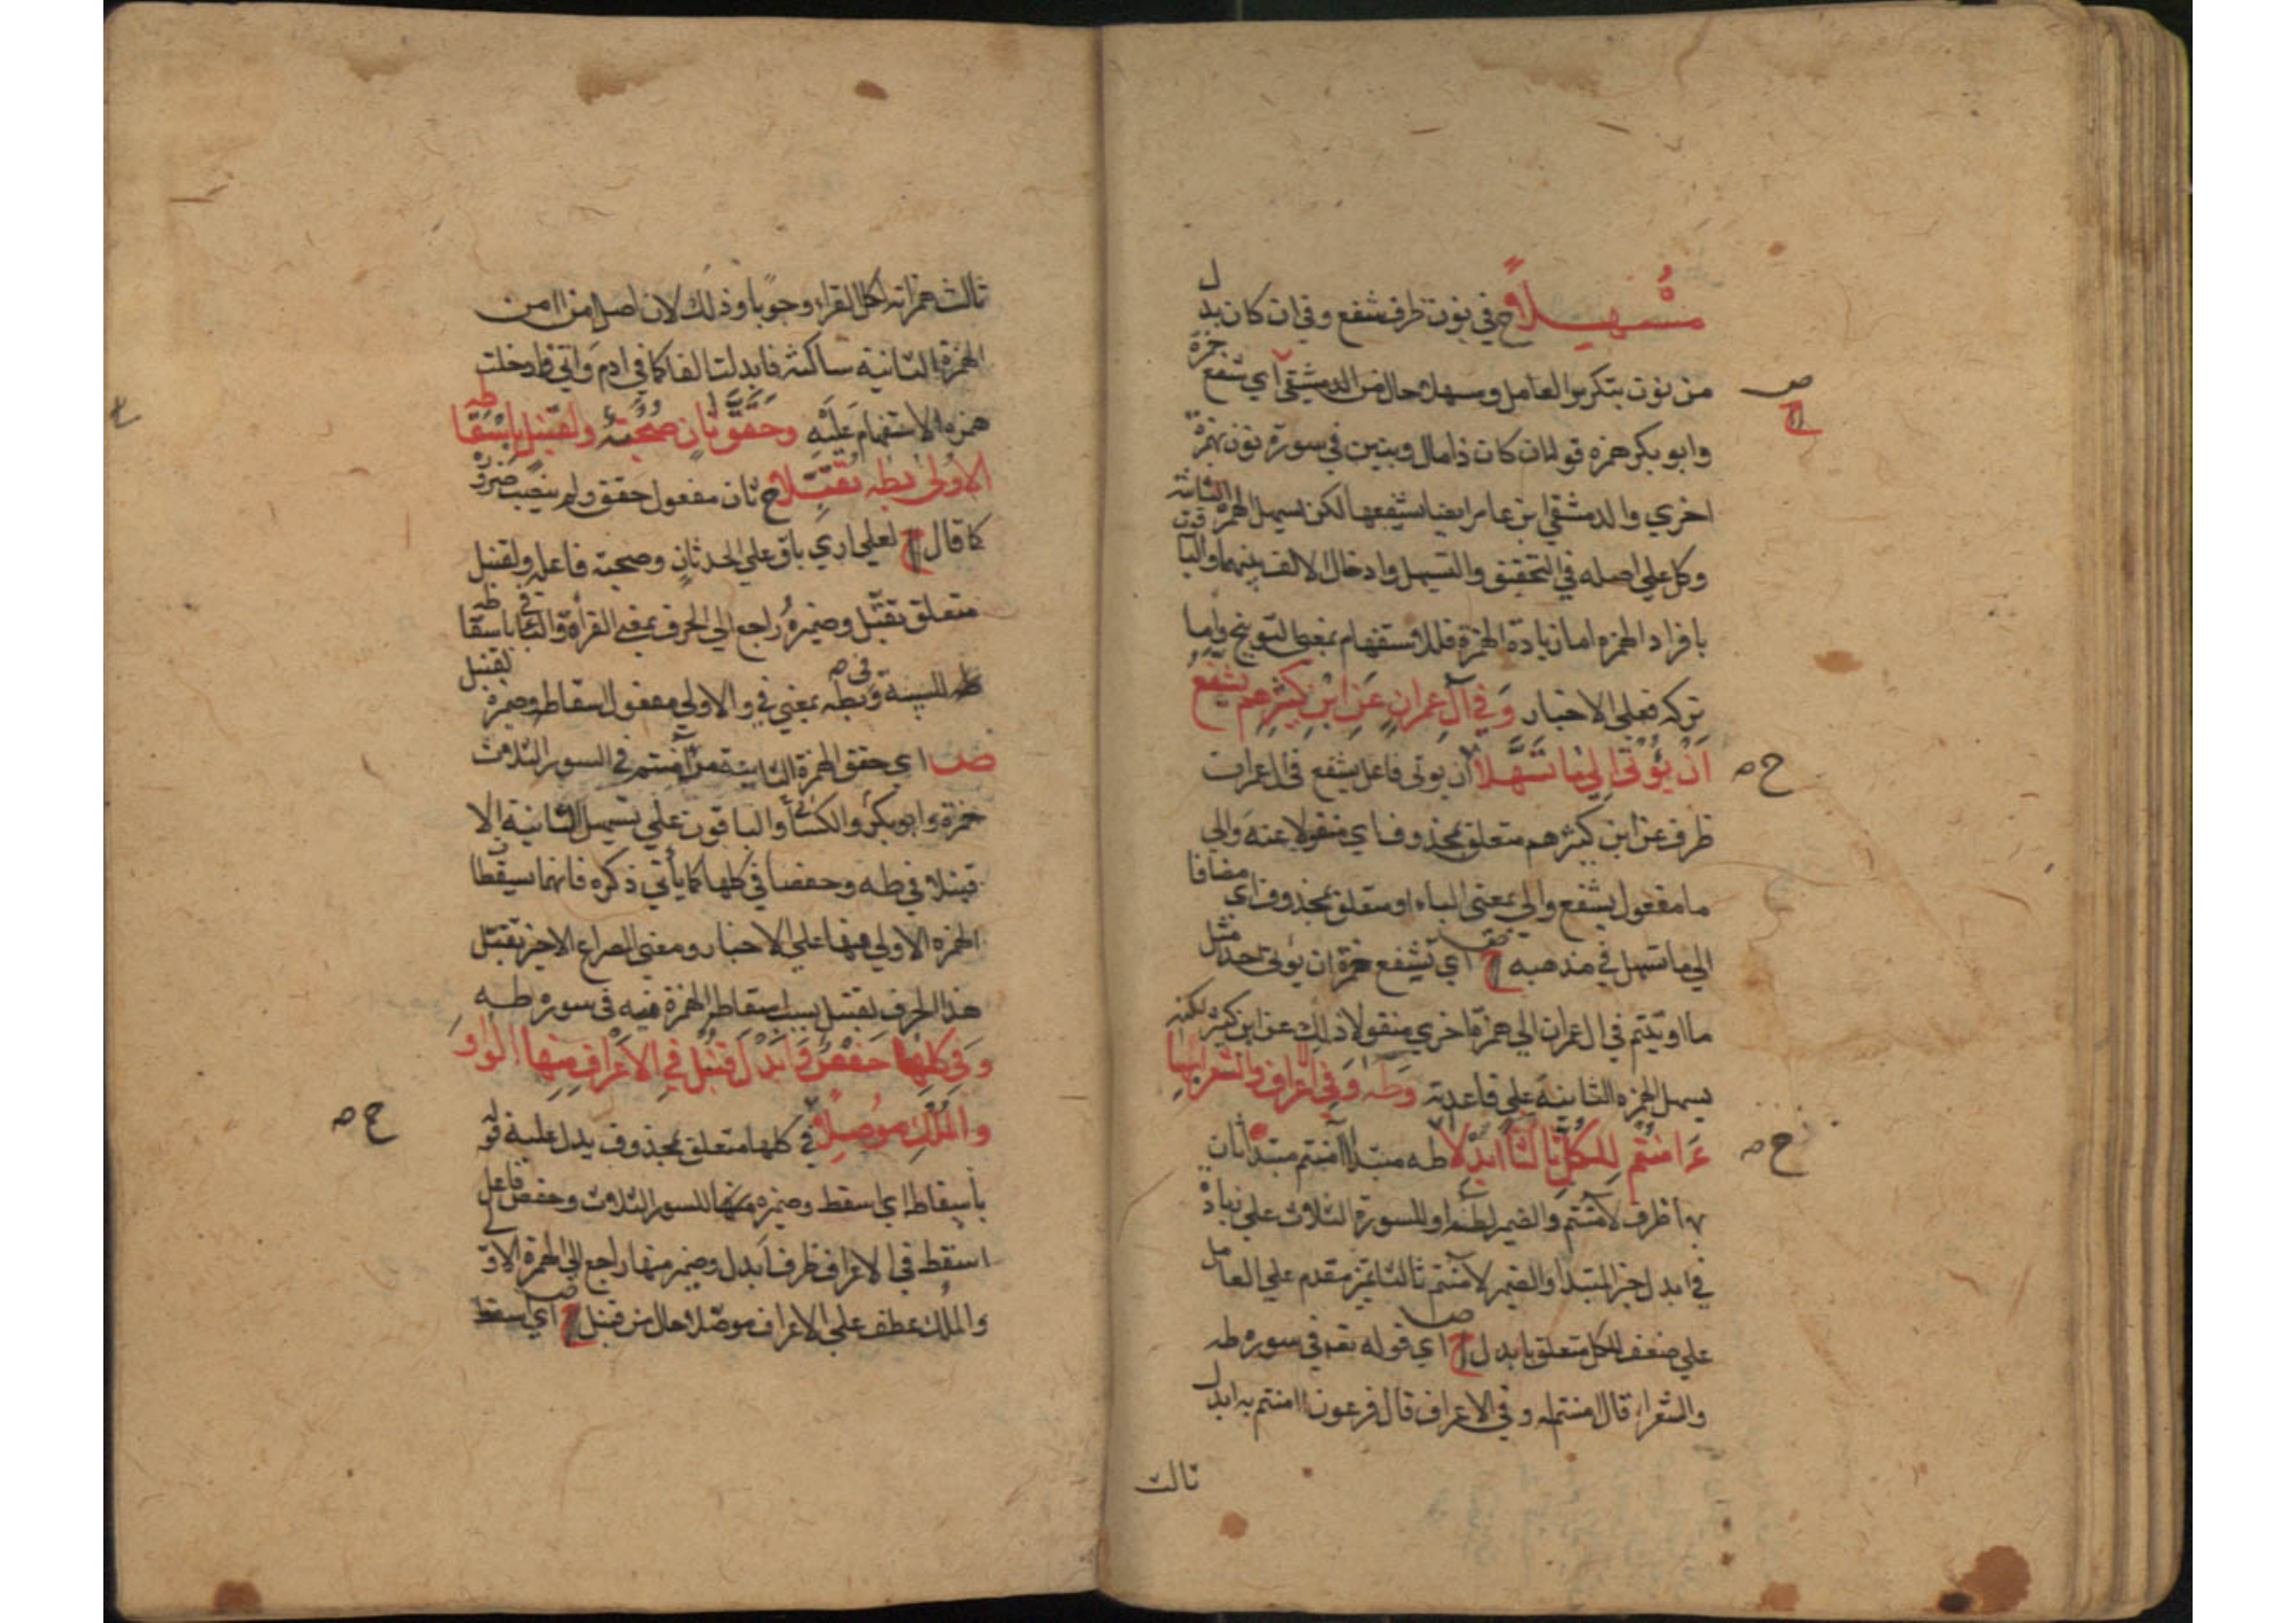 مُسَهِّلاً ح في نون ظرف شفع وفي ان كان بدل
من نون بتكرير العامل ومسهلا حال من الدمشقي اي شفع حمزة
وابو بكر همزه قوله ان كان ذا مال وبنين في سورة نون بهمزة
اخري والدمشقي ابن عامر ايضا يشفعها لكن يسهل الهمزة الثانية
وكل علي اصله في التحقيق والتسهيل وادخال الالف بينهما والباقون
بافراد الهمزه اما زيادة الهمزة فللاستفهام بمعني التوبيخ واما
تركه فعلي الاخبار وَفي آلِ عِمرانٍ عَنِ ابْنِ كَثِيرِهِم يُشَفَّعُ
اَنْ يُؤْتَى اِلى مَا تَسَهَّلاَ ان يوتى فاعل يشفع في ال عمران
ظرف عن ابن كثيرهم متعلق بمحذوف اي منقولا عنه والى
ما مفعول يشفع والي بمعنى الباء او متعلق بمحذوف اي مضافا
الي ما تسهل في مذهبه ح اي تشفع همزة ان يوتى احد مثل
ما اوتيتم في ال عمران الي همزة اخري منقولا ذلك عن ابن كثير لكنه
يسهل الهمزه الثانية علي قاعدته وَطَه وَفِي الاَعْرافِ وَالشُّعَرَا بِهَا
ءَاٰمَنْتُم لِلكُلِّ ثَالِثًا ابْدِلاَ طه مبتدا اامنتم مبتدا ثان
بها ظرف لآمنتم والضمير لطه او للسورة الثلاث علي زيادة
في ابدل خبر المبتدا والضمير لآمنتم ثالثا تميز مقدم علي العامل
علي ضعف للكل متعلق بابدل ح اي قوله تع في سوره طه
والشعراء قال امنتم له وفي الاعراف قال فرعون اامنتم به ابدل
ثالث
ثالث همزاته لكل القراء وجوبا وذلك لان اصل امن اامن
الهمزة الثانية ساكنة فابدلت الفا كما في ادم واتي فادخلت
همزه الاستفهام عليه وَحَقَّقَ ثَانٍ صُحْبَةٌ وَلِقُنْبُلٍ بِاسْقَاطِهِ
الاُولَى بِطه تُقُبِّلاَ ح ثان مفعول حقق ولم ينصب ضرورة
كما قال ح لعلي اري باق علي الحدثان وصحبته فاعله ولقنبل
متعلق تقبل وضميره راجع الي الحرف بمعني القرأة والباء في باسقاطه
للسببية وفي بطه بمعني في والاولي مفعول اسقاط وضميره لقنبل
ض اي حقق الهمزة الثانية من آمنتم في السور الثلاث
حمزة وابو بكر والكسائ والباقون علي تسهيل الثانية الا
قنبلا في طه وحفصا في كلها كما يأتي ذكره فانهما يسقطان
الهمزه الاولي منها علي الاخبار ومعنى المصراع الاخير تقبل
هذا الحرف لقنبل بسبب اسقاط الهمزة فيه في سوره طه
وَفِي كُلِّهَا حَفْصٌ وَاَبْدَلَ قُنْبُلٌ فِي الاَعْرَافِ مِنْهَا الوَاوَ
وَالمُلْكِ مُوصِلاً في كلها متعلق بمحذوف يدل عليه قوله
باسقاط اي اسقط وضميره كلها للسور الثلاث وحفص فاعل
اسقط في الاعراف ظرف ابدل وضمير منها راجع الي الهمزة الاولي
والملك عطف علي الاعراف موصلا حال من قنبل ح اي اسقط